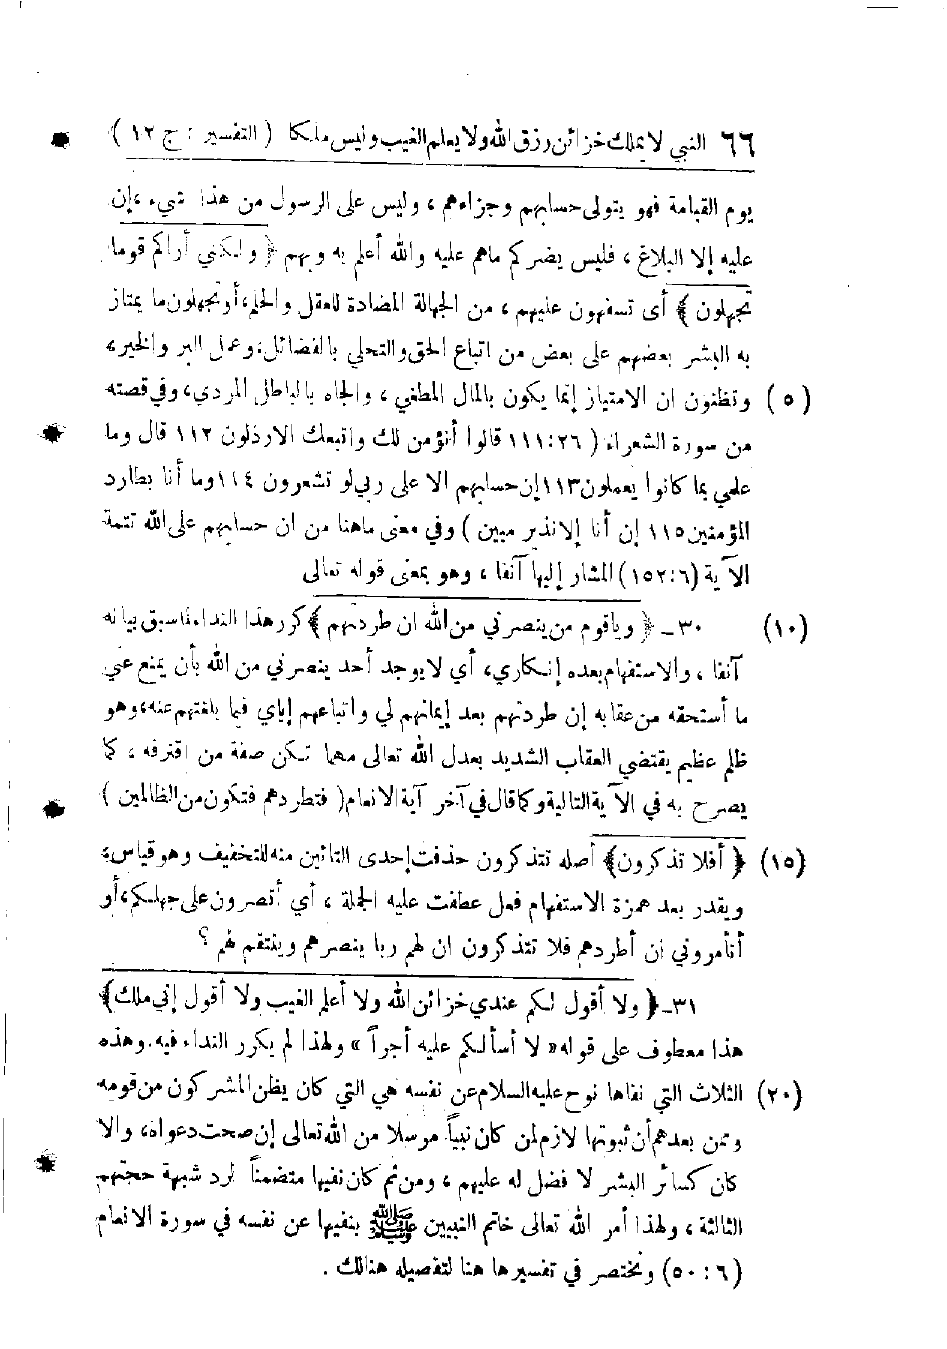 ٦٦ النبي لا يملك خزائن رزق الله ولا يعلم الغيب وليس ملكا ( التفسير : ج ١٢ )
يوم القيامة فهو يتولى حسابهم وجزاءهم ، وليس على الرسول من هذا شيء ، إن
عليه إلا البلاغ ، فليس يضركم ماهم عليه والله أعلم به وبهم ﴿ ولكني أراكم قوما
تجهلون ﴾ أى تسفهون عليهم ، من الجهالة المضادة للعقل والحلم، أو تجهلون ما يمتاز
به البشر بعضهم على بعض من اتباع الحق والتحلي بالفضائل، وعمل البر والخير ،
(٥) وتظنون ان الامتياز إنما يكون بالمال المطغي ، والجاه بالباطل المردي، وفي قصته
من سورة الشعراء ( ٢٦:١١١ قالوا أنؤمن لك واتبعك الارذلون ١١٢ قال وما
علمي بما كانوا يعملون ١١٣ إن حسابهم الا على ربي لو تشعرون ١١٤ وما أنا بطارد
المؤمنين ١١٥ إن أنا إلا نذير مبين ) وفي معنى ماهنا من ان حسابهم على الله تتمة
الآية (٦:١٥٢) المشار إليها آنفا ، وهو بمعنى قوله تعالى
(١٠) ٣٠ـ ﴿ وياقوم من ينصرني من الله ان طردتهم ﴾ كرر هذا النداء لما سبق بيانه
آنفا ، والاستفهام بعده إنكاري، أي لا يوجد أحد ينصرني من الله بأن يمنع عني
ما أستحقه من عقابه إن طردتهم بعد إيمانهم لي واتباعهم إياي فيما بلغتهم عنه، وهو
ظلم عظيم يقتضي العقاب الشديد بعدل الله تعالى مهما تكن صفة من اقترفه ، كما
يصرح به في الآية التالية وكما قال في آخر آية الانعام ( فتطردهم فتكون من الظالمين )
(١٥) ﴿ أفلا تذكرون﴾ أصله تتذكرون حذفت إحدى التائين منه للتخفيف وهو قياس،
ويقدر بعد همزة الاستفهام فعل عطفت عليه الجملة ، أي أتصرون على جهلكم، أو
أتأمروني ان أطردهم فلا تتذكرون ان لهم ربا ينصرهم وينتقم لهم ؟
٣١ـ ﴿ ولا أقول لكم عندي خزائن الله ولا أعلم الغيب ولا أقول إني ملك﴾
هذا معطوف على قوله « لا أسألكم عليه أجراً » ولهذا لم يكرر النداء فيه. وهذه
(٢٠) الثلاث التي نفاها نوح عليه السلام عن نفسه هي التي كان يظن المشركون من قومه
وممن بعدهم أن ثبوتها لازم لمن كان نبياً مرسلا من الله تعالى إن صحت دعواه، والا
كان كسائر البشر لا فضل له عليهم ، ومن ثم كان نفيها متضمناً لرد شبهة حجتهم
الثالثة ، ولهذا أمر الله تعالى خاتم النبيين ﷺ بنفيها عن نفسه في سورة الانعام
(٦ : ٥٠) ونختصر في تفسيرها هنا لتفصيله هنالك .